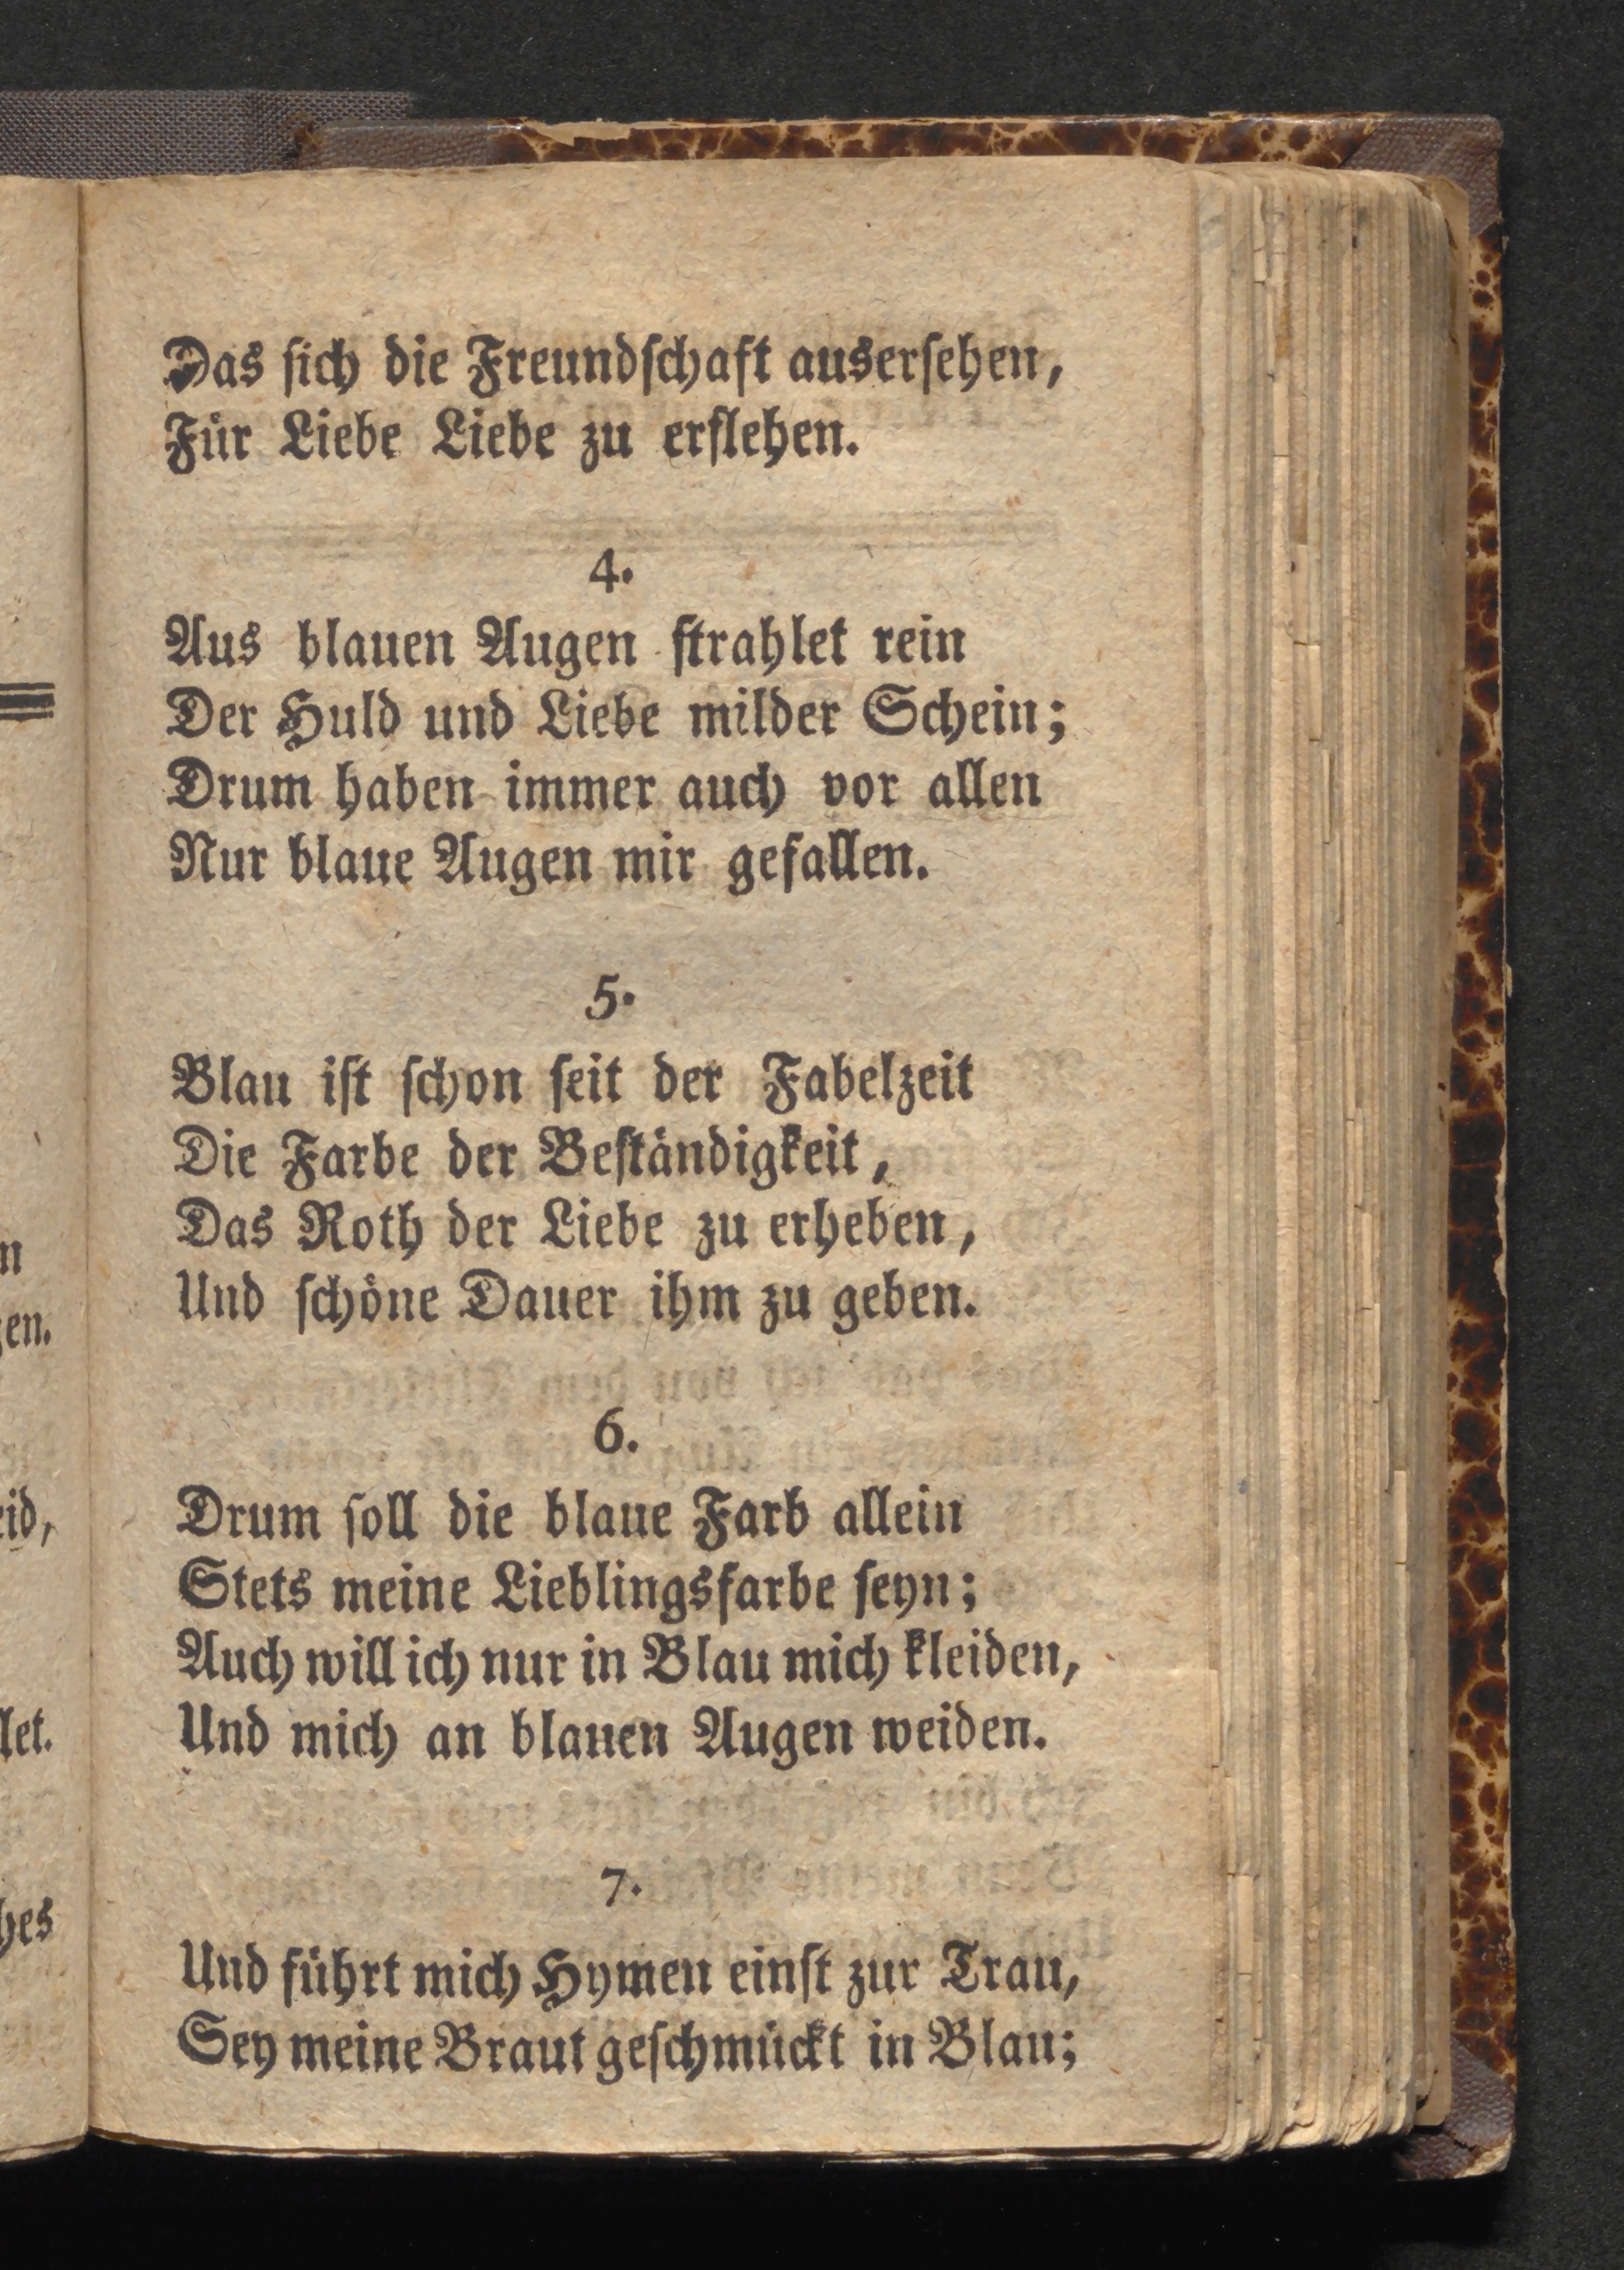 Das ſich die Freundſchaft auserſehen,
Für Liebe Liebe zu erflehen.
4.
Aus blauen Augen ſtrahlet rein
Der Huld und Liebe milder Schein;
Drum haben immer auch vor allen
Nur blaue Augen mir gefallen.
5.
Blau iſt ſchon ſeit der Fabelzeit
Die Farbe der Beſtändigkeit,
Das Roth der Liebe zu erheben,
Und ſchöne Dauer ihm zu geben.
6.
Drum ſoll die blaue Farb allein
Stets meine Lieblingsfarbe ſeyn;
Auch will ich nur in Blau mich kleiden,
Und mich an blauen Augen weiden.
7.
Und führt mich Hymen einſt zur Trau,
Sey meine Braut geſchmückt in Blau;